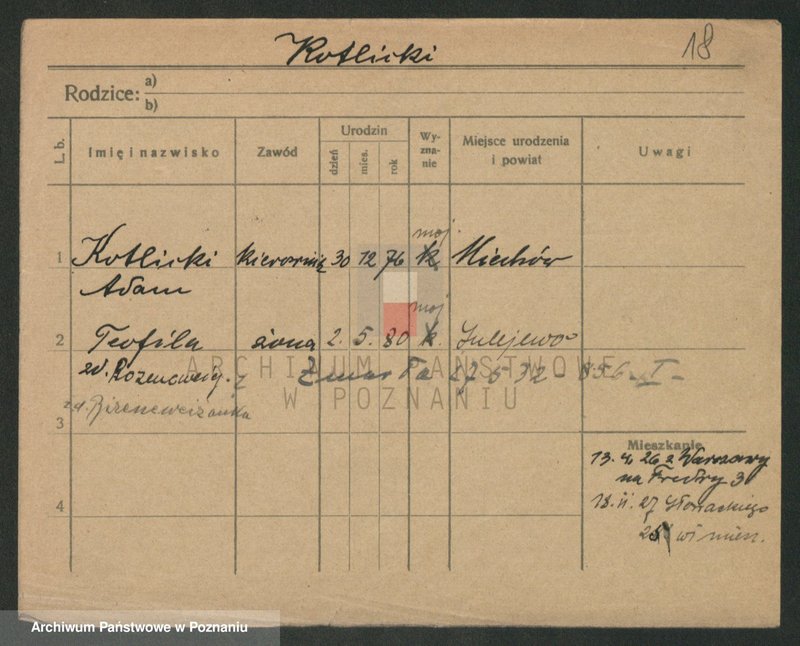 Kotlicki
18
Rodzice: a)
b)
L. b. Imię i nazwisko Zawód Urodzin dzień mies. rok Wy-zna-nie Miejsce urodzenia i powiat Uwagi
moj.
1 Kotlicki kierownik 30 12 76 k Miechów
Adam
moj
2 Teofila żona 2. 5. 80 k. Sulejewo
zd. Rozencweig. Zmarła 27 5 32 - 856 - I -
zd.
3
Mieszkanie
13. 4. 26 z Warszawy
na Fredry 3
4 18. II. 27 Słowackiego
ARCHIWUM PAŃSTWOWE
W POZNANIU
Archiwum Państwowe w Poznaniu